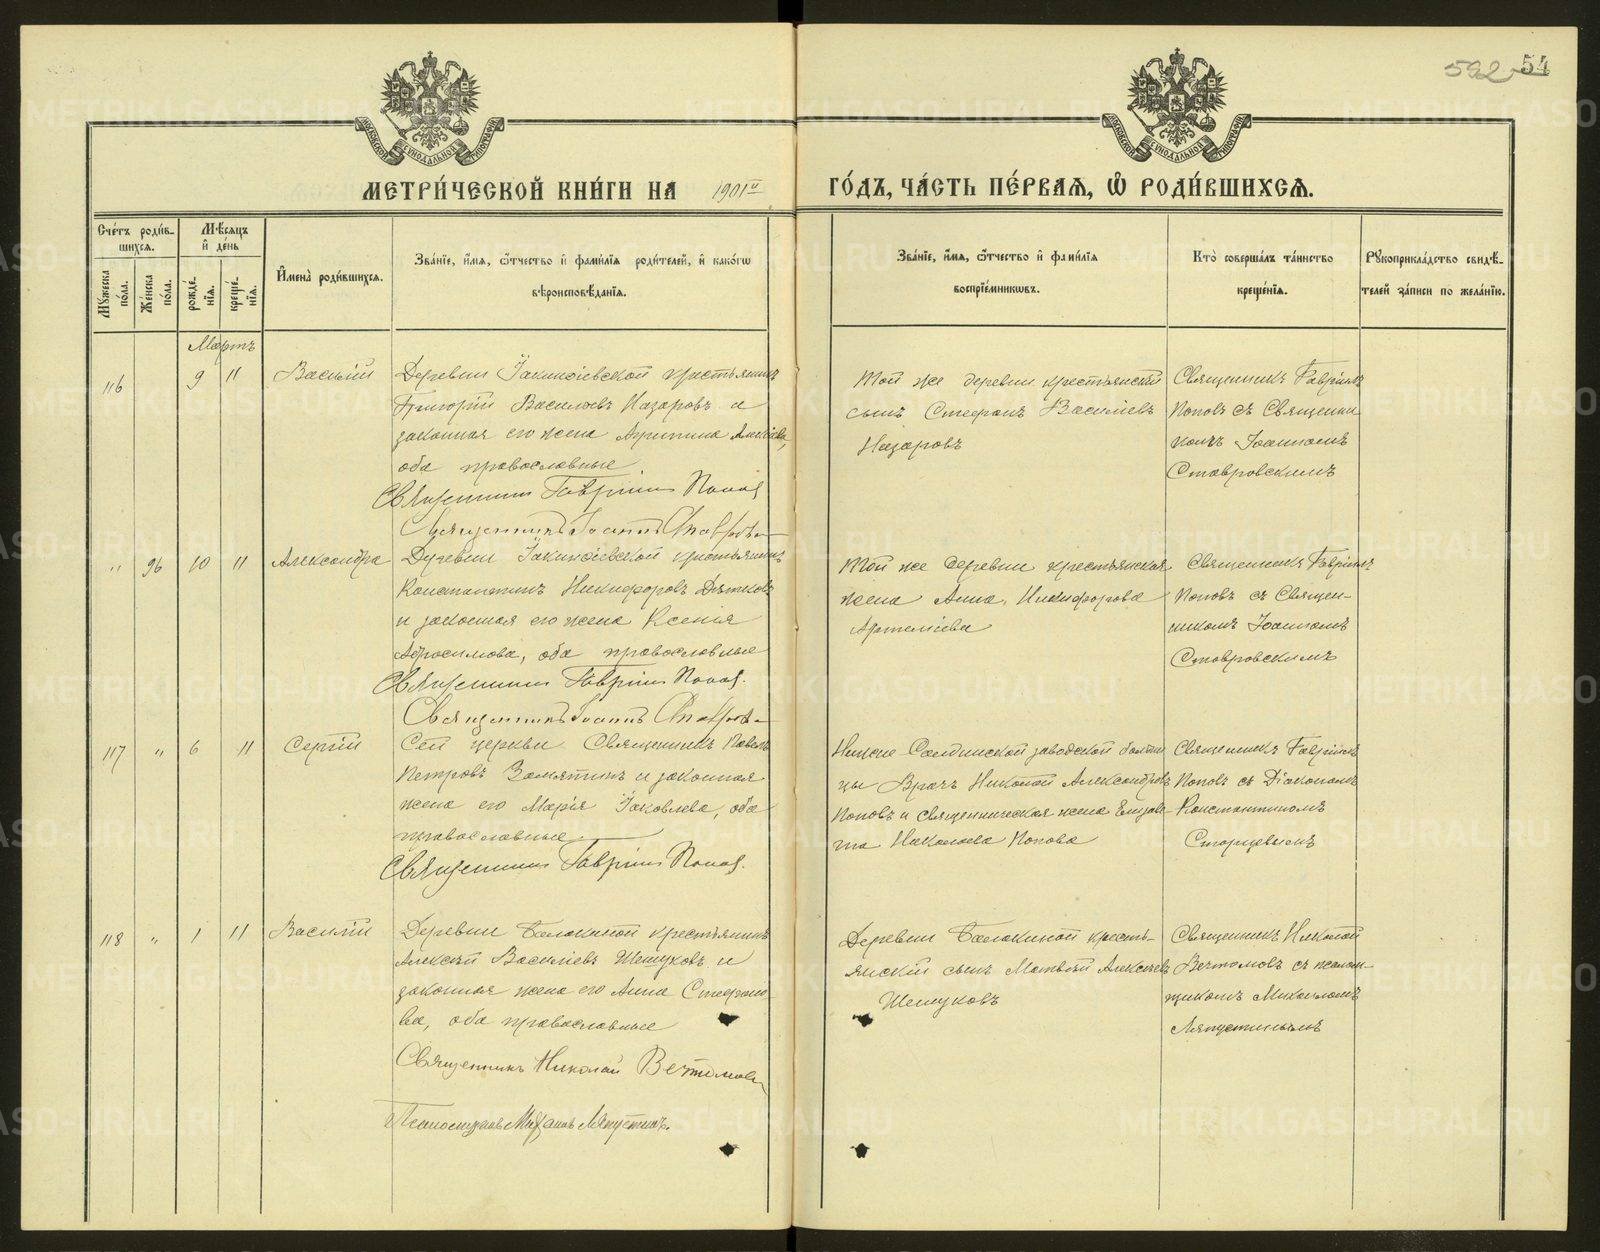 592 54
МОСКОВСКОЙ СѴНОДАЛЬНОЙ ТИПОГРАФІИ
МОСКОВСКОЙ СѴНОДАЛЬНОЙ ТИПОГРАФІИ
МЕТРИ́ЧЕСКОЙ КНИ́ГИ НА 1901й ГО́ДЪ, ЧА́СТЬ ПЕ́РВАѦ, Ѡ҆ РОДИ́ВШИХСѦ.
Сче́тъ роди́в-
шихсѧ.
Мꙋ́жеска по́ла.
Же́нска по́ла.
Мѣ́сѧцъ
и҆ де́нь
рожде́-
нїѧ.
креще́-
нїѧ.
И҆мена̀ роди́вшихсѧ.
Зва́нїе, и҆́мѧ, ѻ҆́тчество и҆ фами́лїѧ роди́телей, и҆ како́гѡ
вѣроисповѣ́данїѧ.
Зва́нїе, и҆́мѧ, ѻ҆́тчество и҆ фами́лїѧ
воспрїе́мникѡвъ.
Кто̀ соверша́лъ та́инство
креще́нїѧ.
Рꙋкоприкла́дство свидѣ́-
телей за́писи по жела́нїю.
Мартъ
116 9 11 Василій
Деревни Іакинѳіевской крестьянинъ
Григорій Василіевъ Назаровъ и
законная его жена Агрипина Алексіева,
оба православные
Священникъ Гавріилъ Поповъ
Священникъ Іоаннъ Ставров
Той же деревни крестьянскій
сынъ Стефанъ Василіевъ
Назаровъ
Священникъ Гавріилъ
Поповъ съ Священни
комъ Іоанномъ
Ставровскимъ
" 96 10 11 Александра
Деревни Іакинѳіевской крестьянинъ
Константинъ Никифоровъ Дѣтковъ
и законная его жена Ксенія
Афросимова, оба православные
Священникъ Гавріилъ Поповъ.
Священникъ Іоаннъ Ставров
Той же деревни крестьянская
жена Анна Никифорова
Артеміева
Священникъ Гавріилъ
Поповъ съ Священ-
никомъ Іоанномъ
Ставровскимъ
117 " 6 11 Сергій
Сей церкви Священникъ Павелъ
Петровъ Замятинъ и законная
жена его Марія Іаковлева, оба
православные
Священникъ Гавріилъ Поповъ.
Нижне Салдинской заводской больни
цы Врачъ Николай Александровъ
Поповъ и священническая жена Елизаве
та Николаева Попова
Священникъ Гавріилъ
Поповъ съ Діакономъ
Константиномъ
Старцевымъ
118 " 1 11 Василій
Деревни Балакиной крестьянинъ
Алексій Василіевъ Шешуковъ и
законная жена его Анна Стефано-
ва, оба православные
Священникъ Николай Вечтомовъ
Псаломщикъ Михаилъ Ляпустинъ.
Деревни Балакиной кресть-
янскій сынъ Матвѣй Алексѣевъ
Шешуковъ
Священникъ Николай
Вечтомовъ съ псалом-
щикомъ Михаиломъ
Ляпустинымъ
METRIKI.GASO-URAL.RU